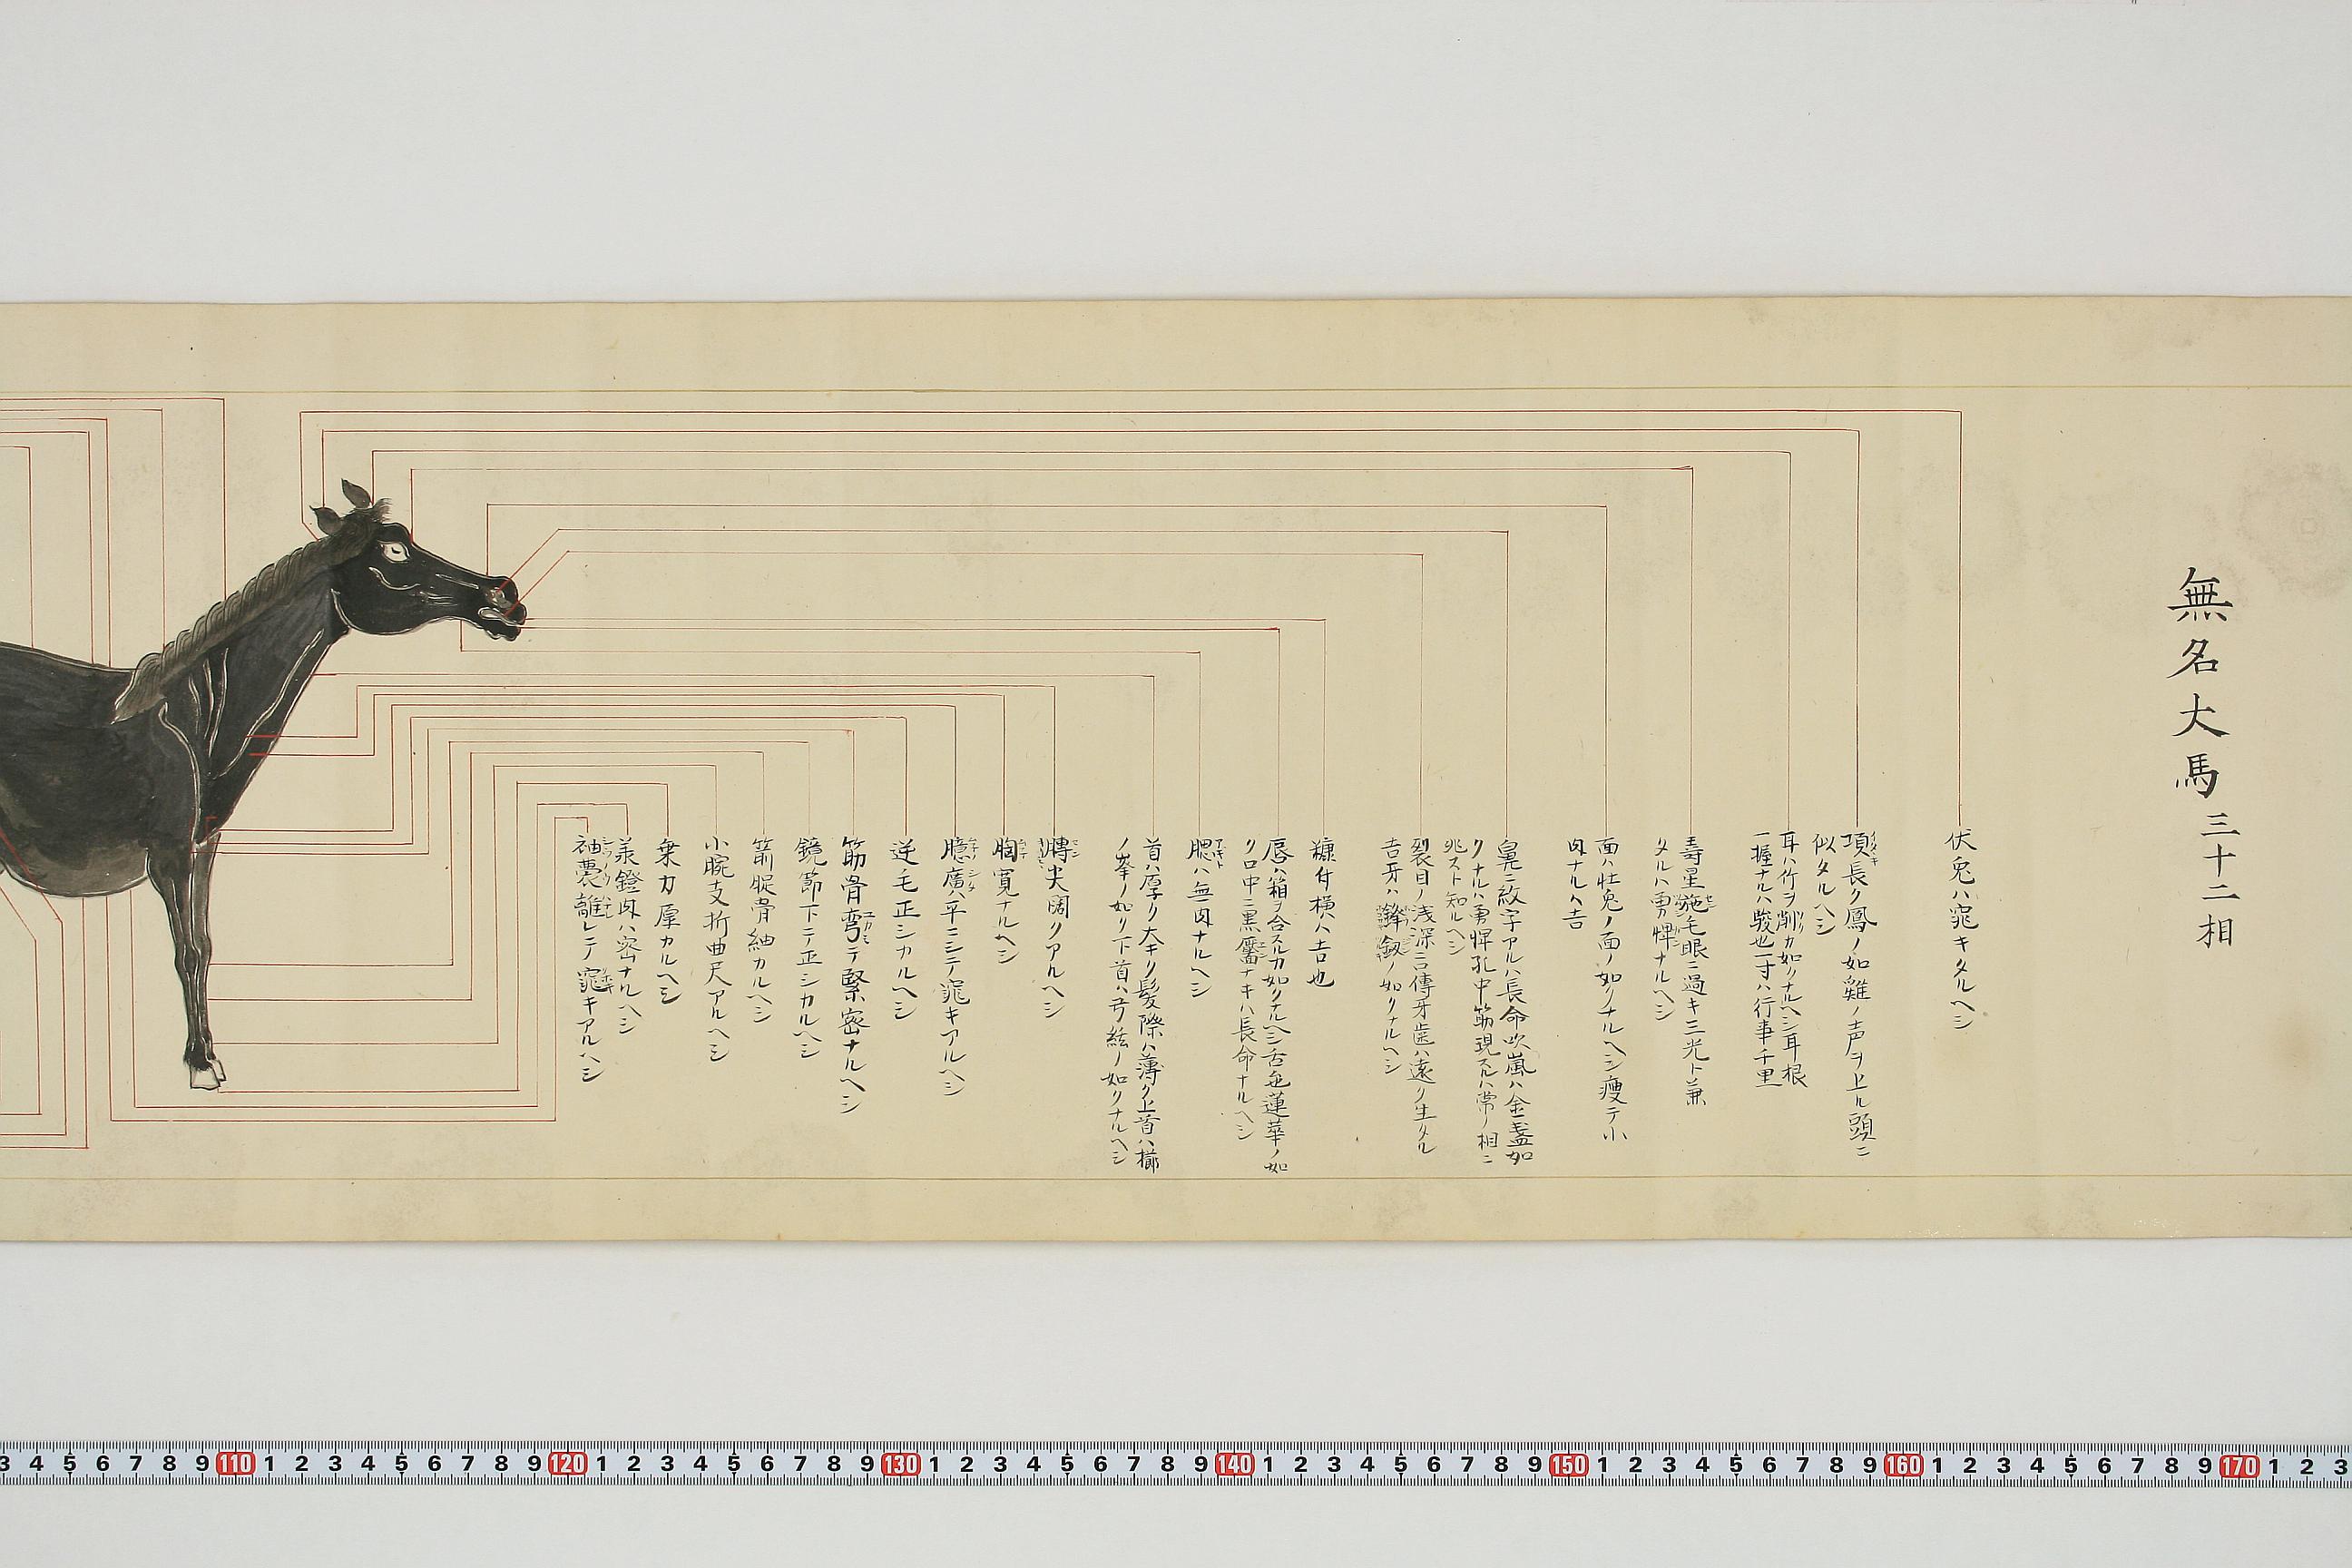 無名大馬三十二相
伏兎ハ窕キタルヘシ
項長ク鳳ノ如雞ノ声ヲ上ル頭ニ
似タルヘシ
耳ハ竹ヲ削カ如クナルヘシ耳根
一握ナルハ駿也一寸ハ行事千里
壽星施毛眼ニ過キ三光ト兼
タルハ勇悍ナルヘシ
面ハ壮兎ノ面ノ如クナルヘシ痩テ小
肉ナルハ吉
鼻ニ紋字アルハ長命吹嵐ハ金盞如
クナルハ勇悍孔中筋現スルハ常ノ相ニ
非スト知ルヘシ
裂目ノ浅深ニ傳牙歯ハ遠ク生タル
吉牙ハ鋒釼ノ如クナルヘシ
糠付横ハ吉也
唇ハ箱ヲ合スルカ如クナルヘシ舌色蓮華ノ如
ク口中ニ黒黶ナキハ長命ナルヘシ
腮ハ無肉ナルヘシ
首ハ厚ク大キク髪際ハ薄ク上首ハ櫛
ノ峯ノ如ク下首ハ弓絃ノ如クナルヘシ
膞尖闊クアルヘシ
胸寛ナルヘシ
臆廣ハ平ニシテ窕キアルヘシ
逆毛正シカルヘシ
筋骨彎テ緊密ナルヘシ
鏡節下テ正シカルヘシ
箭腿骨紬カルヘシ
小腕支折曲尺アルヘシ
乗力厚カルヘシ
承鐙肉ハ密ナルヘシ
袖嚢離レテ窕キアルヘシ
3 4 5 6 7 8 9 110 1 2 3 4 5 6 7 8 9 120 1 2 3 4 5 6 7 8 9 130 1 2 3 4 5 6 7 8 9 140 1 2 3 4 5 6 7 8 9 150 1 2 3 4 5 6 7 8 9 160 1 2 3 4 5 6 7 8 9 170 1 2 3